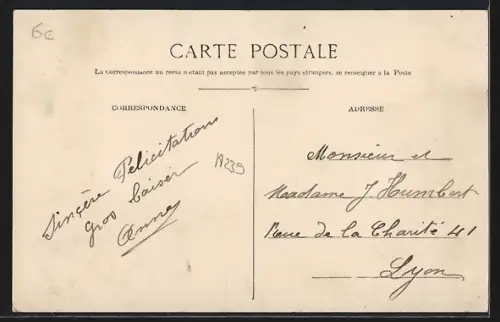 6€
CARTE POSTALE
La Correspondance au recto n'étant pas acceptée par tous les pays étrangers, se renseigner à la Poste
CORRESPONDANCE
Sincère Félicitations
gros baiser
Anna
A239
ADRESSE
Monsieur et
Madame J. Humbert
Rue de la Charité 41
Lyon